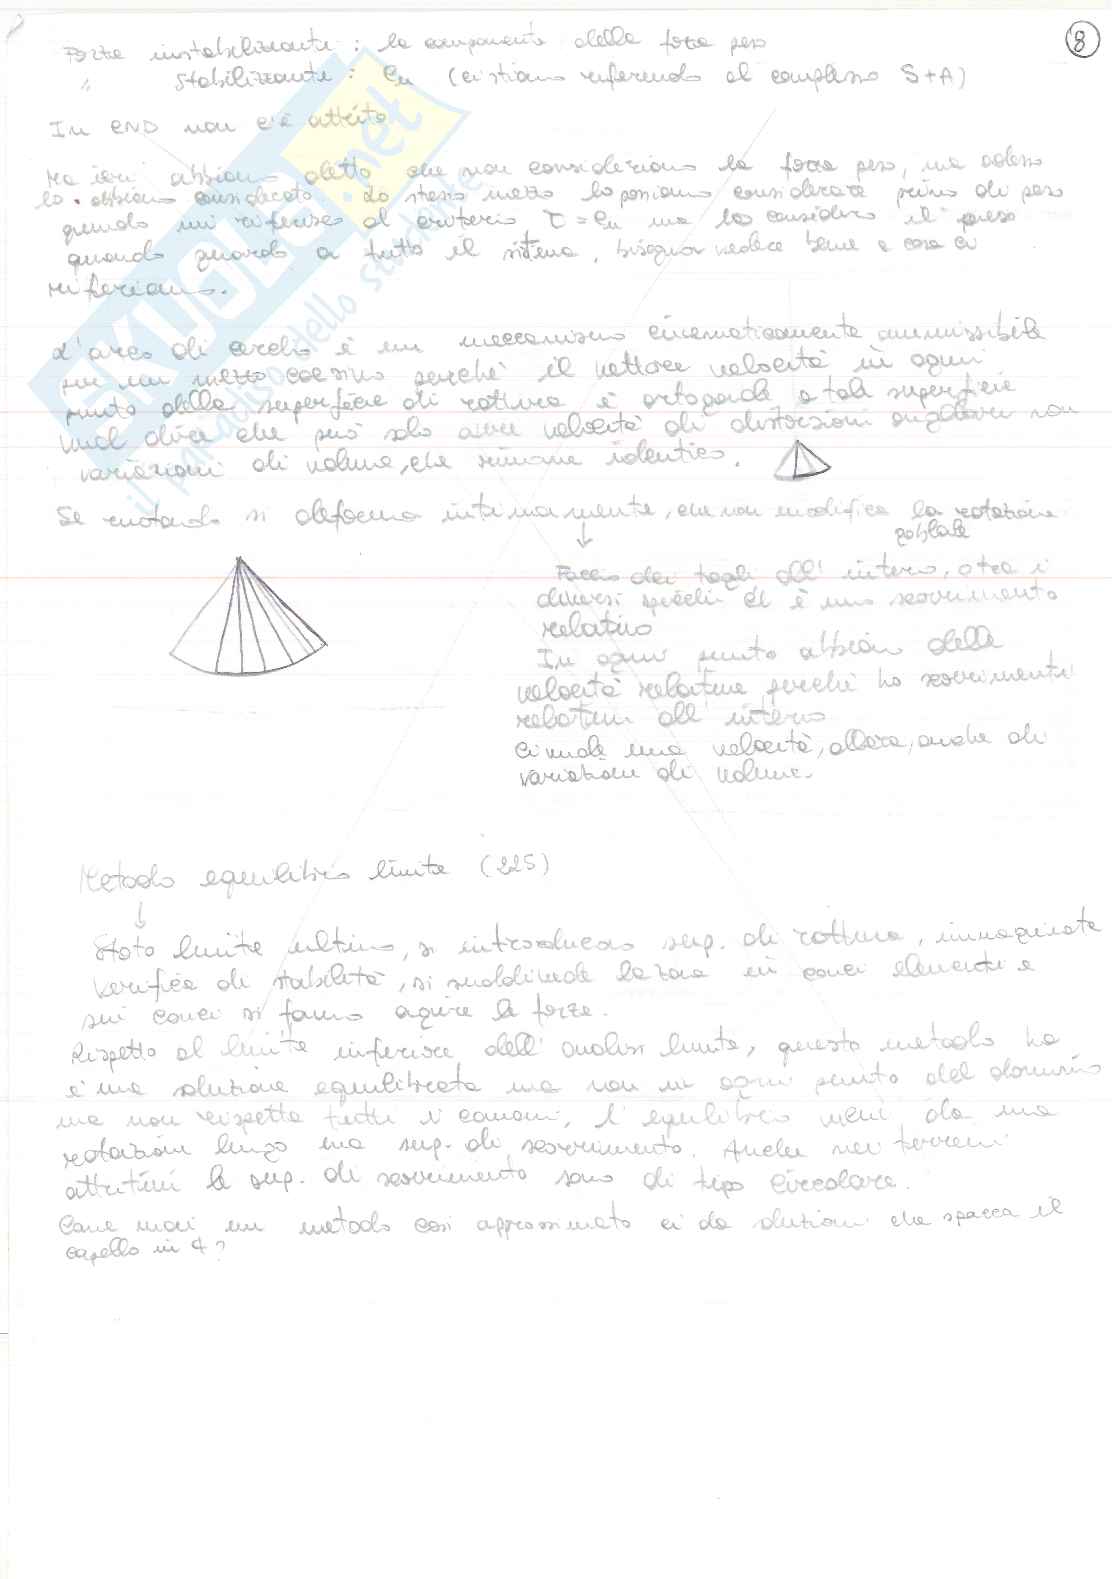 8
Forze instabilizzanti: le componenti della forza peso
" Stabilizzante: Cu (ci stiamo riferendo al complesso S+A)
In CND non c'è attrito
Ma ieri abbiamo detto che non consideriamo la forza peso, ma adesso
lo abbiamo considerato. Lo stesso mezzo lo possiamo considerare privo di peso
quando mi riferisco al criterio τ = Cu ma lo considero il peso
quando guardo a tutto il sistema, bisogna vedere bene a cosa ci
riferiamo.
L'arco di cerchio è un meccanismo cinematicamente ammissibile
per un mezzo coesivo perché il vettore velocità in ogni
punto della superficie di rottura è ortogonale a tale superficie
Vuol dire che può solo avere velocità di distorsioni angolari non
variazioni di volume, che rimane identico.
Se ruotando si deforma intimamente, che non modifica la rotazione
globale
↓
Faccio dei tagli all'interno, tra i
diversi spicchi c'è uno scorrimento
relativo
In ogni punto abbiamo delle
velocità relative perché ho scorrimenti
relativi all'interno
Ci vuole una velocità, allora, anche di
variazioni di volume.
Metodo equilibrio limite (225)
↓
Stato limite ultimo, si introducono sup. di rottura, immaginate
verifica di stabilità, si suddivide la zona in conci elementi e
sui conci si fanno agire le forze.
Rispetto al limite inferiore dell'analisi limite, questo metodo ha
è una soluzione equilibrata ma non in ogni punto del dominio
ma non rispetta tutti i canoni, l'equilibrio viene da una
rotazione lungo una sup. di scorrimento. Anche nei terreni
attritivi le sup. di scorrimento sono di tipo circolare.
Come mai un metodo così approssimato ci da soluzioni che spacca il
capello in 4?
SKUOLA.net
il paradiso dello studente